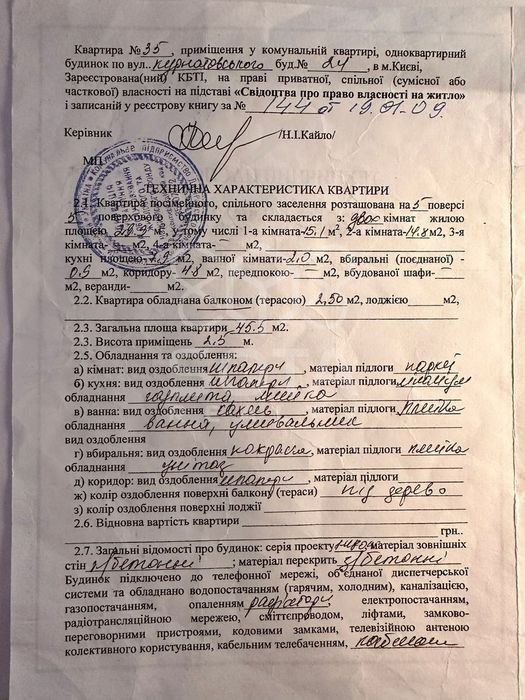 Квартира №35, приміщення у комунальній квартирі, одноквартирний
будинок по вул. Курнатовського буд.№ 24, в м.Києві,
Зареєстрована(ний) КБТІ, на праві приватної, спільної (сумісної або
часткової) власності на підставі «Свідоцтва про право власності на житло»
і записаний у реєстрову книгу за № 144 от 19.01.09.
Керівник /Н.І.Кайло/
МП
ТЕХНИЧНА ХАРАКТЕРИСТИКА КВАРТИРИ
2.1. Квартира посімейного, спільного заселення розташована на 5 поверсі
5 поверхового будинку та складається з: двох кімнат жилою
площею 29,9 м², у тому числі 1-а кімната-15.1 м², 2-а кімната-14.8 м2, 3-я
кімната- м2, 4-а кімната- м2,
кухні площею- м2, ванної кімнати-2.0 м2, вбиральні (поєднаної) -
0.9 м2, коридору-4.8 м2, передпокою- м2, вбудованої шафи-
м2, веранди- м2.
2.2. Квартира обладнана балконом (терасою) 2,50 м2, лоджією м2,
2.3. Загальна площа квартири 45.5 м2.
2.3. Висота приміщень 2,5 м.
2.5. Обладнання та оздоблення:
а) кімнат: вид оздоблення шпалери, матеріал підлоги паркет
б) кухня: вид оздоблення шпалери, матеріал підлоги лінолеум
обладнання газплита, мийка
в) ванна: вид оздоблення кахель, матеріал підлоги плитка
обладнання ванна, умивальник
вид оздоблення
г) вбиральня: вид оздоблення, матеріал підлоги плитка
обладнання унітаз
д) коридор: вид оздоблення шпалери, матеріал підлоги
ж) колір оздоблення поверхні балкону (тераси) під дерево
з) колір оздоблення поверхні лоджії
2.6. Відновна вартість квартири
грн..
2.7. Загальні відомості про будинок: серія проекту матеріал зовнішніх
стін з/бетонні; матеріал перекрить з/бетонні
Будинок підключено до телефонної мережі, об'єднаної диспетчерської
системи та обладнано водопостачанням (гарячим, холодним), каналізацією,
газопостачанням, опаленням радіатори, електропостачанням,
радіотрансляційною мережею, сміттєпроводом, ліфтами, замково-
переговорними пристроями, кодовими замками, телевізійною антеною
колективного користування, кабельним телебаченням,